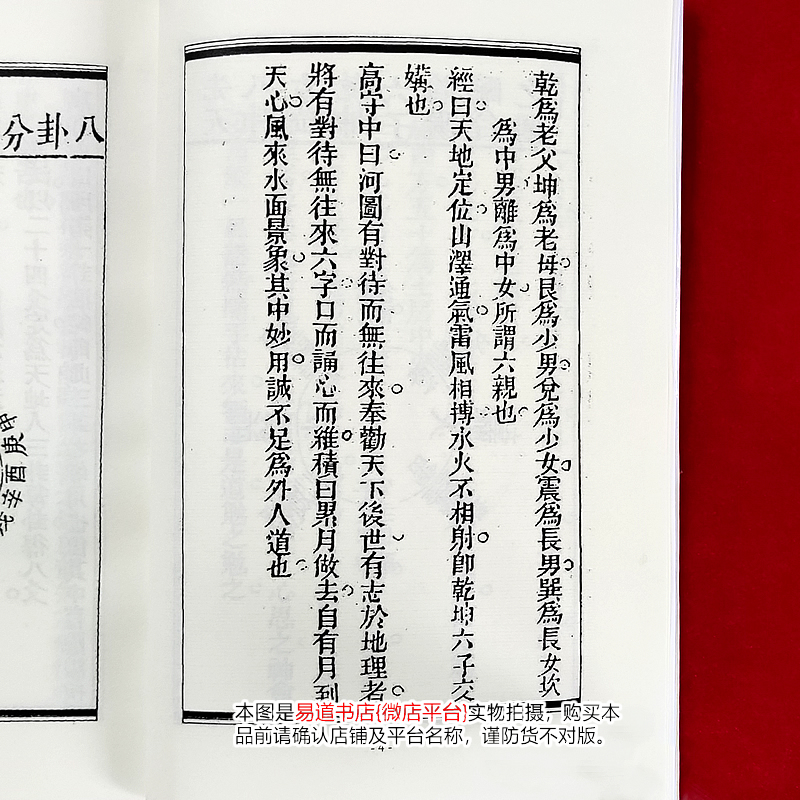 乾爲老父坤爲老母艮爲少男兌爲少女震爲長男巽爲長女坎
爲中男離爲中女所謂六親也
經曰天地定位山澤通氣雷風相摶水火不相射卽乾坤六子交
媾也
高守中曰河圖有對待而無往來奉勸天下後世有志於地理者
將有對待無往來六字口而誦心而維積日累月做去自有月到
天心風來水面景象其中妙用誠不足爲外人道也
八卦分
甲
庚
酉
辛
本图是易道书店{微店平台}实物拍摄，购买本
品前请确认店铺及平台名称，谨防货不对版。
-4-